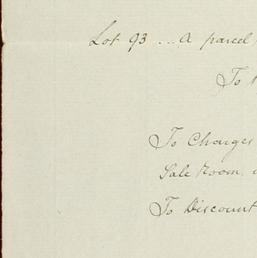 Lot 93 ... A parcel
To
To Charges
Sale Room,
To Discount